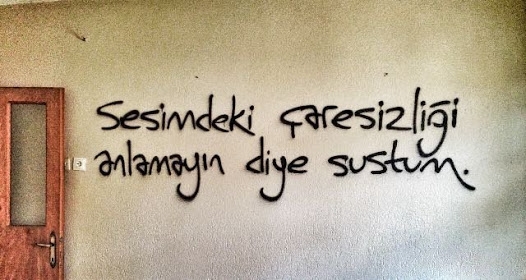 Sesimdeki çaresizliği
anlamayın diye sustum.